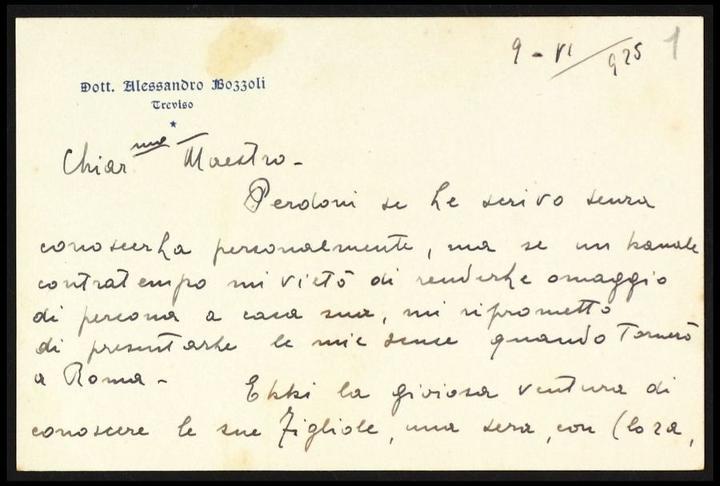 9 - VI / 925 1
Dott. Alessandro Bozzoli
Treviso
Chiar.mo Maestro -
Perdoni se Le scrivo senza
conoscerLa personalmente, ma se un banale
contratempo mi vietò di renderLe omaggio
di persona a casa sua, mi riprometto
di presentarLe le mie scuse quando tornerò
a Roma -
Ebbi la gioiosa ventura di
conoscere le sue figliole, una sera, con